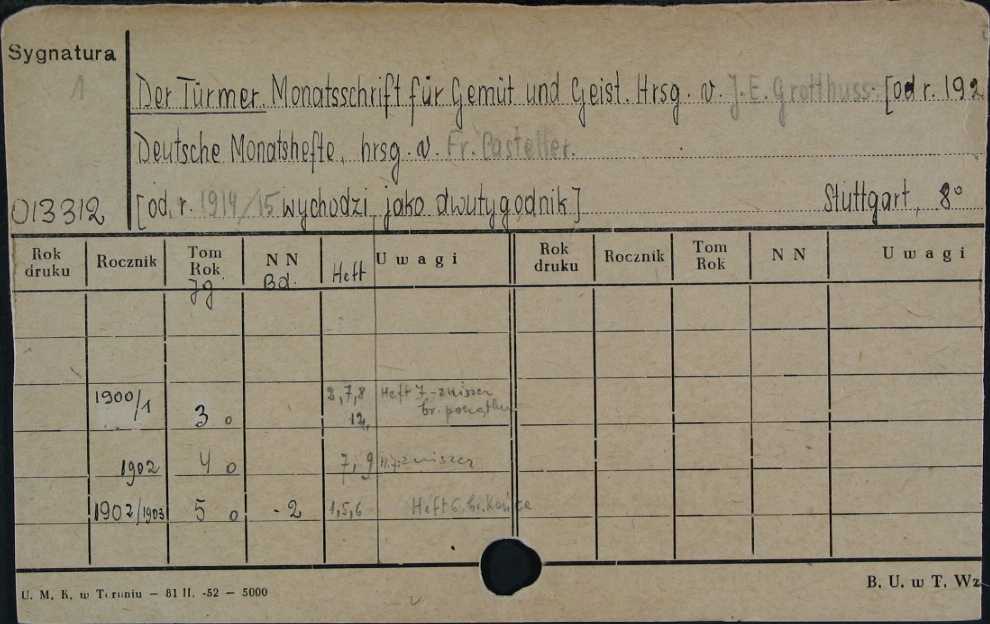 Sygnatura
1
Der Türmer. Monatsschrift für Gemüt und Geist. Hrsg. v. J. E. Grotthuss. [od r. 192
Deutsche Monatshefte, hrsg. v. Fr. Casteller.
013312 [od. r. 1914/15 wychodzi jako dwutygodnik] Stuttgart, 8°
Rok druku Rocznik Tom Rok Jg. NN Bd. Heft Uwagi Rok druku Rocznik Tom Rok NN Uwagi
1900/1 3 o 2,7,8 12, Heft 7-zniszcz br. początku
1902 4 o 7, 9 H.7: zniszcz
1902/1903 5 o - 2 1,5,6 Heft 6. br. końca
U. M. K. w Toruniu — 81 II. -52 — 5000
B. U. w T. Wz